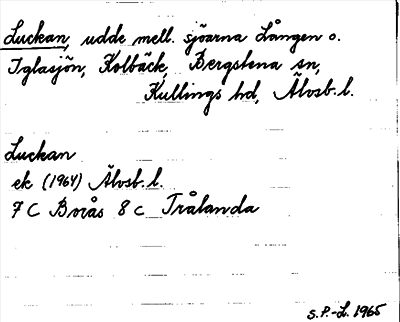 Luckan, udde mell. sjöarna Lången o.
Iglasjön, Kolbäck, Bergstena sn,
Kullings hd, Älvsb. l.
Luckan
ek (1964) Älvsb. l.
7 C Borås 8 c Trålanda
S.P.-L. 1965